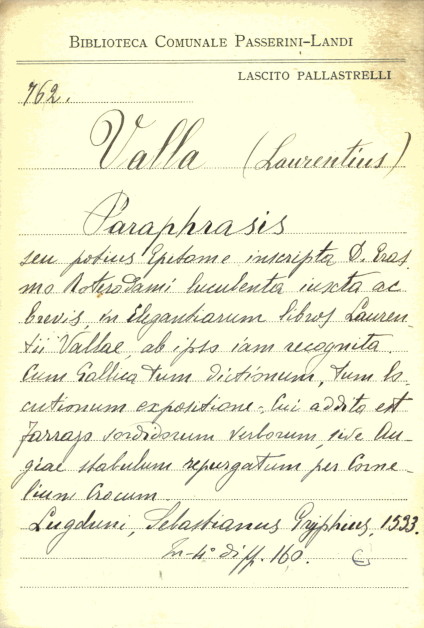 BIBLIOTECA COMUNALE PASSERINI-LANDI
LASCITO PALLASTRELLI
762.
Valla (Laurentius)
Paraphrasis
seu potius Epitome inscripta D. Eras
mo Roterodami luculenta iuxta ac
brevis, in Elegantiarum libros Lauren-
tii Vallae, ab ipso iam recognita.
Cum Gallica tum dictionum, tum lo-
cutionum expositione. Cui addita est
farrago sordidorum verborum, sive Au-
giae stabulum repurgatum per Corne-
lium Crocum
Lugduni, Sebastianus Gryphius, 1533.
In-4° di ff. 160.